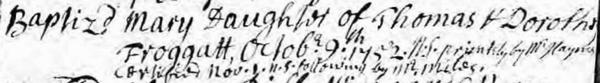 Baptiz'd Mary Daughter of Thomas & Doroth
Froggatt, Octob. 9th 1752. N.S. by Mr
Certified Nov. 1. N.S. following by Mr. Miles.